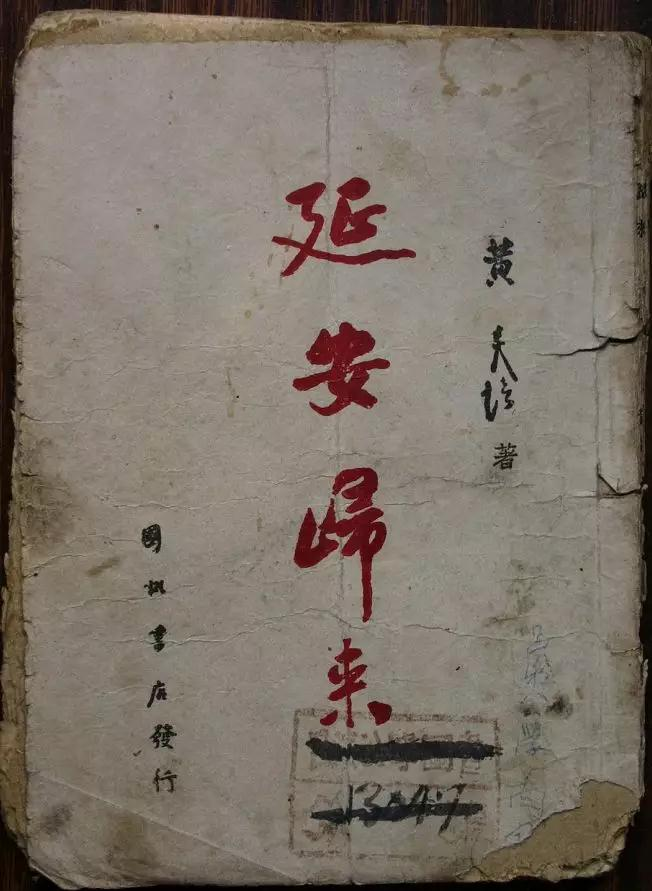 黄炎培 著
延安歸来
國訊書店發行
13047